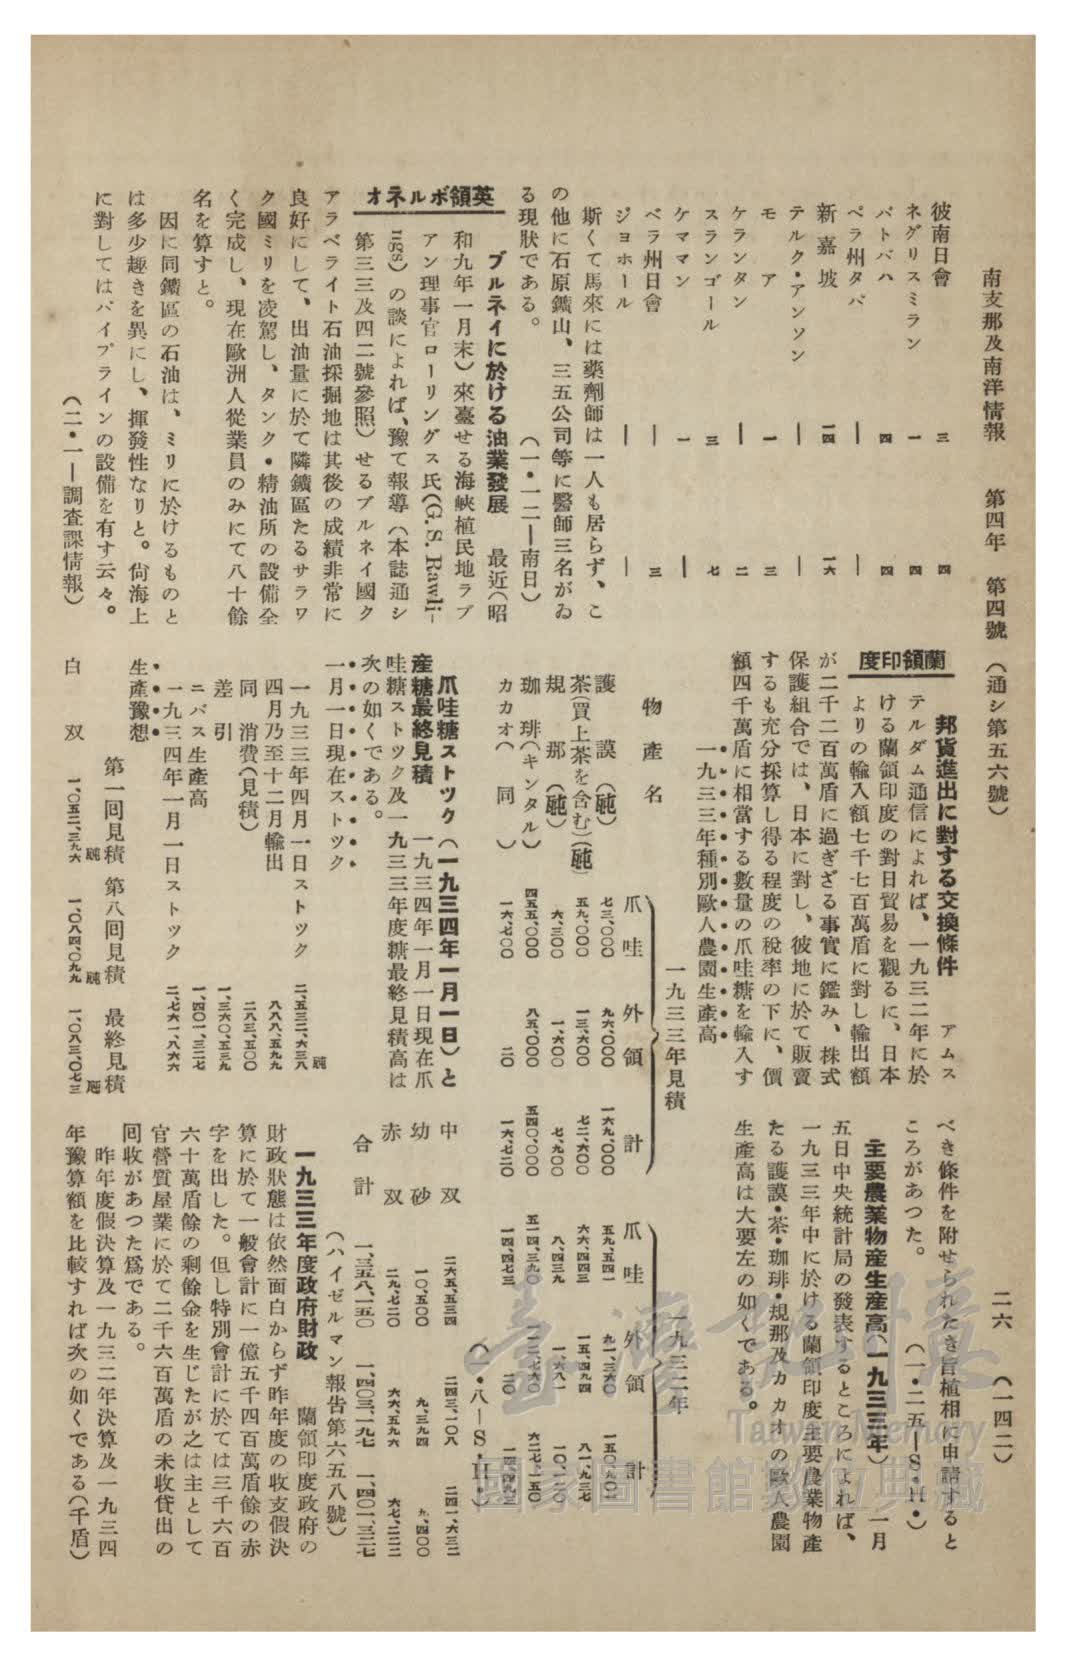 南支那及南洋情報　第四年　第四號　（通シ第五六號）　二六　（一四二）
彼南日會　三　四
ネグリスミラン　一　四
バトバハ　四　四
ペラ州タパ　―　―
新嘉坡　一四　一六
テルク・アンソン　―　―
モア　一　三
ケランタン　―　二
スランゴール　三　七
ケママン　一　―
ペラ州日會　―　三
ジョホール　―　―
斯くて馬來には藥劑師は一人も居らず、こ
の他に石原鑛山、三五公司等に醫師三名がゐ
る現狀である。　（一・一二―南日）
英領ボルネオ
ブルネイに於ける油業發展　最近（昭
和九年一月末）來臺せる海峽植民地ラブ
アン理事官ローリングス氏（G.S. Rawli-
ngs）の談によれば、豫て報導（本誌通シ
第三三及四二號參照）せるブルネイ國ク
アラベライト石油採掘地は其後の成績非常に
良好にして、出油量に於て隣鑛區たるサラワ
ク國ミリを凌駕し、タンク・精油所の設備全
く完成し、現在歐洲人從業員のみにて八十餘
名を算すと。
因に同鑛區の石油は、ミリに於けるものと
は多少趣きを異にし、揮發性なりと。尙海上
に對してはパイプラインの設備を有す云々。
（二・一―調査課情報）
蘭領印度
邦貨進出に對する交換條件　アムス
テルダム通信によれば、一九三二年に於
ける蘭領印度の對日貿易を觀るに、日本
よりの輸入額七千七百萬盾に對し輸出額
が二千二百萬盾に過ぎざる事實に鑑み、株式
保護組合では、日本に對し、彼地に於て販賣
するも充分採算し得る程度の税率の下に、價
額四千萬盾に相當する數量の爪哇糖を輸入す
べき條件を附せられたき旨植相に申請すると
ころがあつた。　（一・二五―S・H・）
主要農業物産生産高（一九三三年）　一月
五日中央統計局の發表するところによれば、
一九三三年中に於ける蘭領印度主要農業物産
たる護謨・茶・珈琲・規那及カカオの歐人農園
生產高は大要左の如くである。
一九三三年種別歐人農園生產高
一九三三年見積　一九三二年
物產名　爪哇　外領　計　爪哇　外領　計
護謨（瓲）　七三、〇〇〇　九六、〇〇〇　一六九、〇〇〇　五九、五四一　九一、三六〇　一五〇、九〇一
茶（買上茶を含む）（瓲）　五九、〇〇〇　一三、六〇〇　七二、六〇〇　六六、四四三　一五、四九四　八一、九三七
規那（瓲）　六、三〇〇　一、六〇〇　七、九〇〇　八、四三九　一、六八一　一〇、一二〇
珈琲（キンタル）　四五五、〇〇〇　八五、〇〇〇　五四〇、〇〇〇　五一四、三九〇　一一二、七六〇　六二七、一五〇
カカオ（同）　一六、七〇〇　二〇　一六、七二〇　一四、四七三　二〇　一四、四九三
（一・八―S・H・）
爪哇糖ストック（一九三四年一月一日）と
産糖最終見積　一九三四年一月一日現在爪
哇糖ストック及一九三三年度糖最終見積高は
次の如くである。
一月一日現在ストック
瓲
一九三三年四月一日ストック　二、五三二、六三八
四月乃至十二月輸出　八八八、五九九
同　消費（見積）　二八三、五〇〇
差引　一、三六〇、五三九
ニバス生產高　一、四〇一、三二七
一九三四年一月一日ストック　二、七六一、八六六
生產豫想
第一回見積　第八回見積　最終見積
瓲　瓲　瓲
白双　一、〇五二、三九六　一、〇八四、〇九九　一、〇八三、〇七三
中双　二六五、五三四　二四三、一〇八　二四一、六三二
幼砂　一〇、五〇〇　九、三九四　九、四〇〇
赤双　二九、七二〇　六六、五九六　六七、二二二
合計　一、三五八、一五〇　一、四〇三、一九七　一、四〇一、三二七
（ハイゼルマン報告第六五八號）
一九三三年度政府財政　蘭領印度政府の
財政狀態は依然面白からず昨年度の收支假決
算に於て一般會計に一億五千四百萬盾餘の赤
字を出した。但し特別會計に於ては三千六百
六十萬盾餘の剩餘金を生じたが之は主として
官營質屋業に於て二千六百萬盾の未收貸出の
回收があつた爲である。
昨年度假決算及一九三二年決算及一九三四
年豫算額を比較すれば次の如くである（千盾）
臺灣記憶
Taiwan Memory
國家圖書館數位典藏